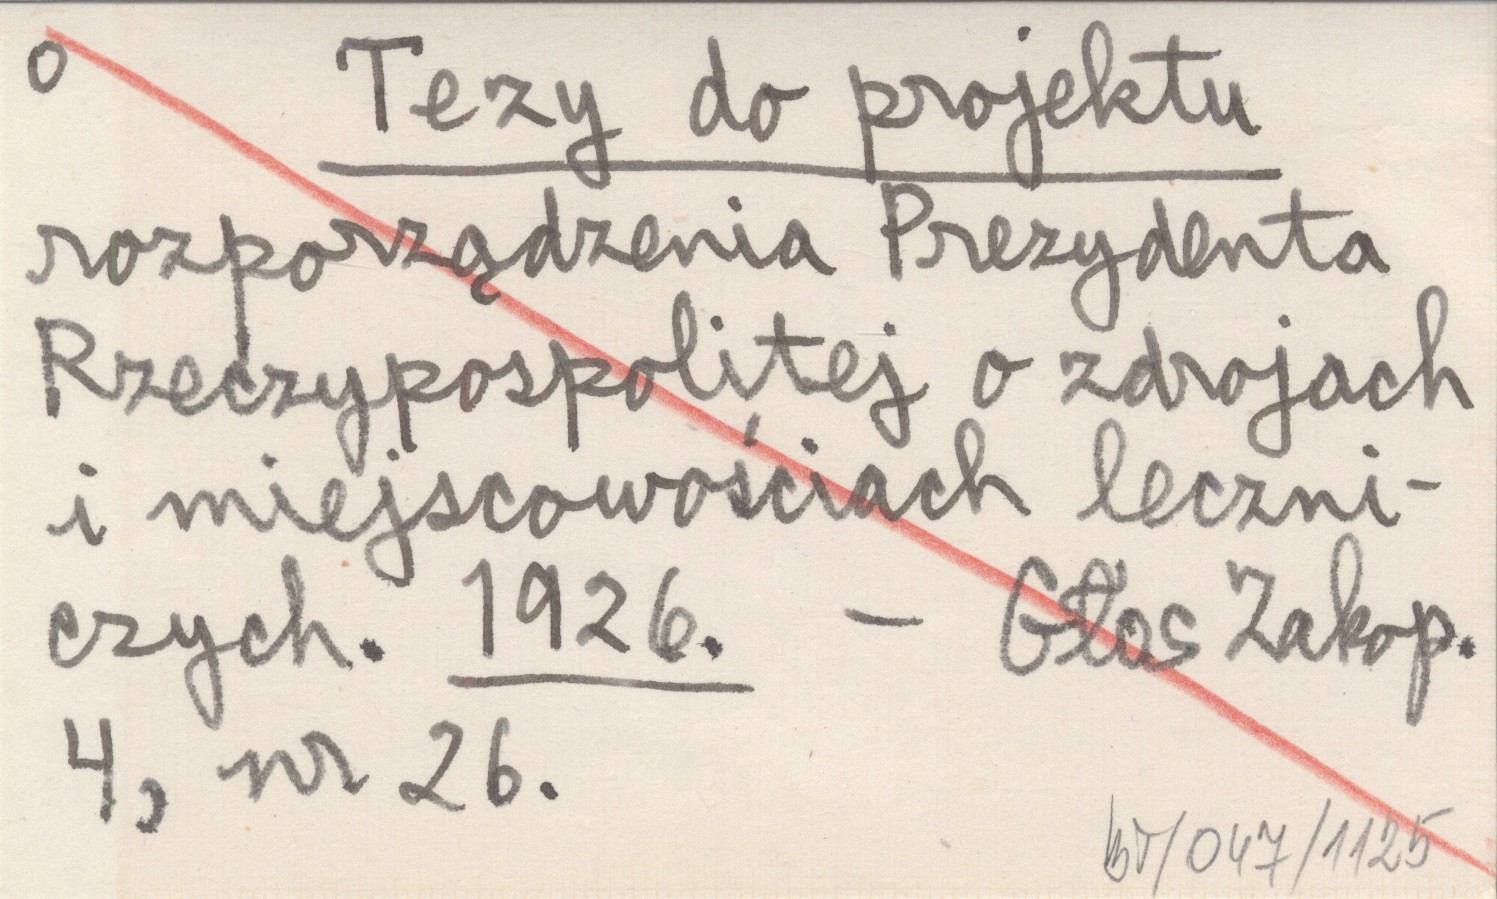 o Tezy do projektu
rozporządzenia Prezydenta
Rzeczypospolitej o zdrojach
i miejscowościach leczni-
czych. 1926. – Głos Zakop.
4, nr 26.
/047/1125